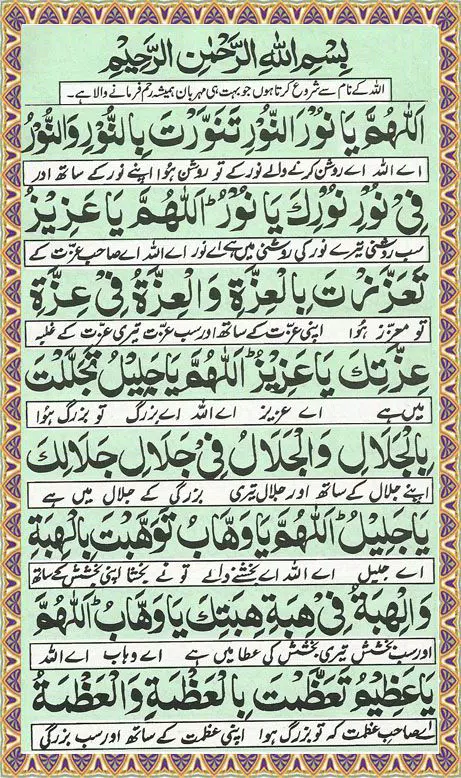 بِسْمِ اللهِ الرَّحْمٰنِ الرَّحِيْمِ
اللہ کے نام سے شروع کرتا ہوں جو بہت ہی مہربان ہمیشہ رحم فرمانے والا ہے۔
اَللّٰهُمَّ يَا نُوْرَ النُّوْرِ تَنَوَّرْتَ بِالنُّوْرِ وَالنُّوْرُ
اے اللہ اے روشن کرنے والے نور کے تو روشن ہُوا اپنے نور کے ساتھ اور
فِيْ نُوْرِ نُوْرِكَ يَا نُوْرُ ؕ اَللّٰهُمَّ يَا عَزِيْزُ
سب روشنی تیرے نور کی روشنی میں ہے اے نور اے اللہ اے صاحب عزّت کے
تَعَزَّزْتَ بِالْعِزَّةِ وَالْعِزَّةُ فِيْ عِزَّةِ
تو معزّز ہُوا اپنی عزّت کے ساتھ اور سب عزّت تیری عزّت کے غلبہ
عِزَّتِكَ يَا عَزِيْزُ ؕ اَللّٰهُمَّ يَا جَلِيْلُ تَجَلَّلْتَ
میں ہے اے عزیز اے اللہ اے بزرگ تو بزرگ ہُوا
بِالْجَلَالِ وَالْجَلَالُ فِيْ جَلَالِ جَلَالِكَ
اپنے جلال کے ساتھ اور جلال تیری بزرگی کے جلال میں ہے
يَا جَلِيْلُ ؕ اَللّٰهُمَّ يَا وَهَّابُ تَوَهَّبْتَ بِالْهِبَةِ
اے جلیل اے اللہ اے بخشنے والے تو نے بخشا اپنی بخشش کے ساتھ
وَالْهِبَةُ فِيْ هِبَةِ هِبَتِكَ يَا وَهَّابُ ؕ اَللّٰهُمَّ
اور سب بخشش تیری بخشش کی عطا میں ہے اے وہاب اے اللہ
يَا عَظِيْمُ تَعَظَّمْتَ بِالْعَظْمَةِ وَالْعَظْمَةُ
اے صاحبِ عظمت کہ تو بزرگ ہوا اپنی عظمت کے ساتھ اور سب بزرگی